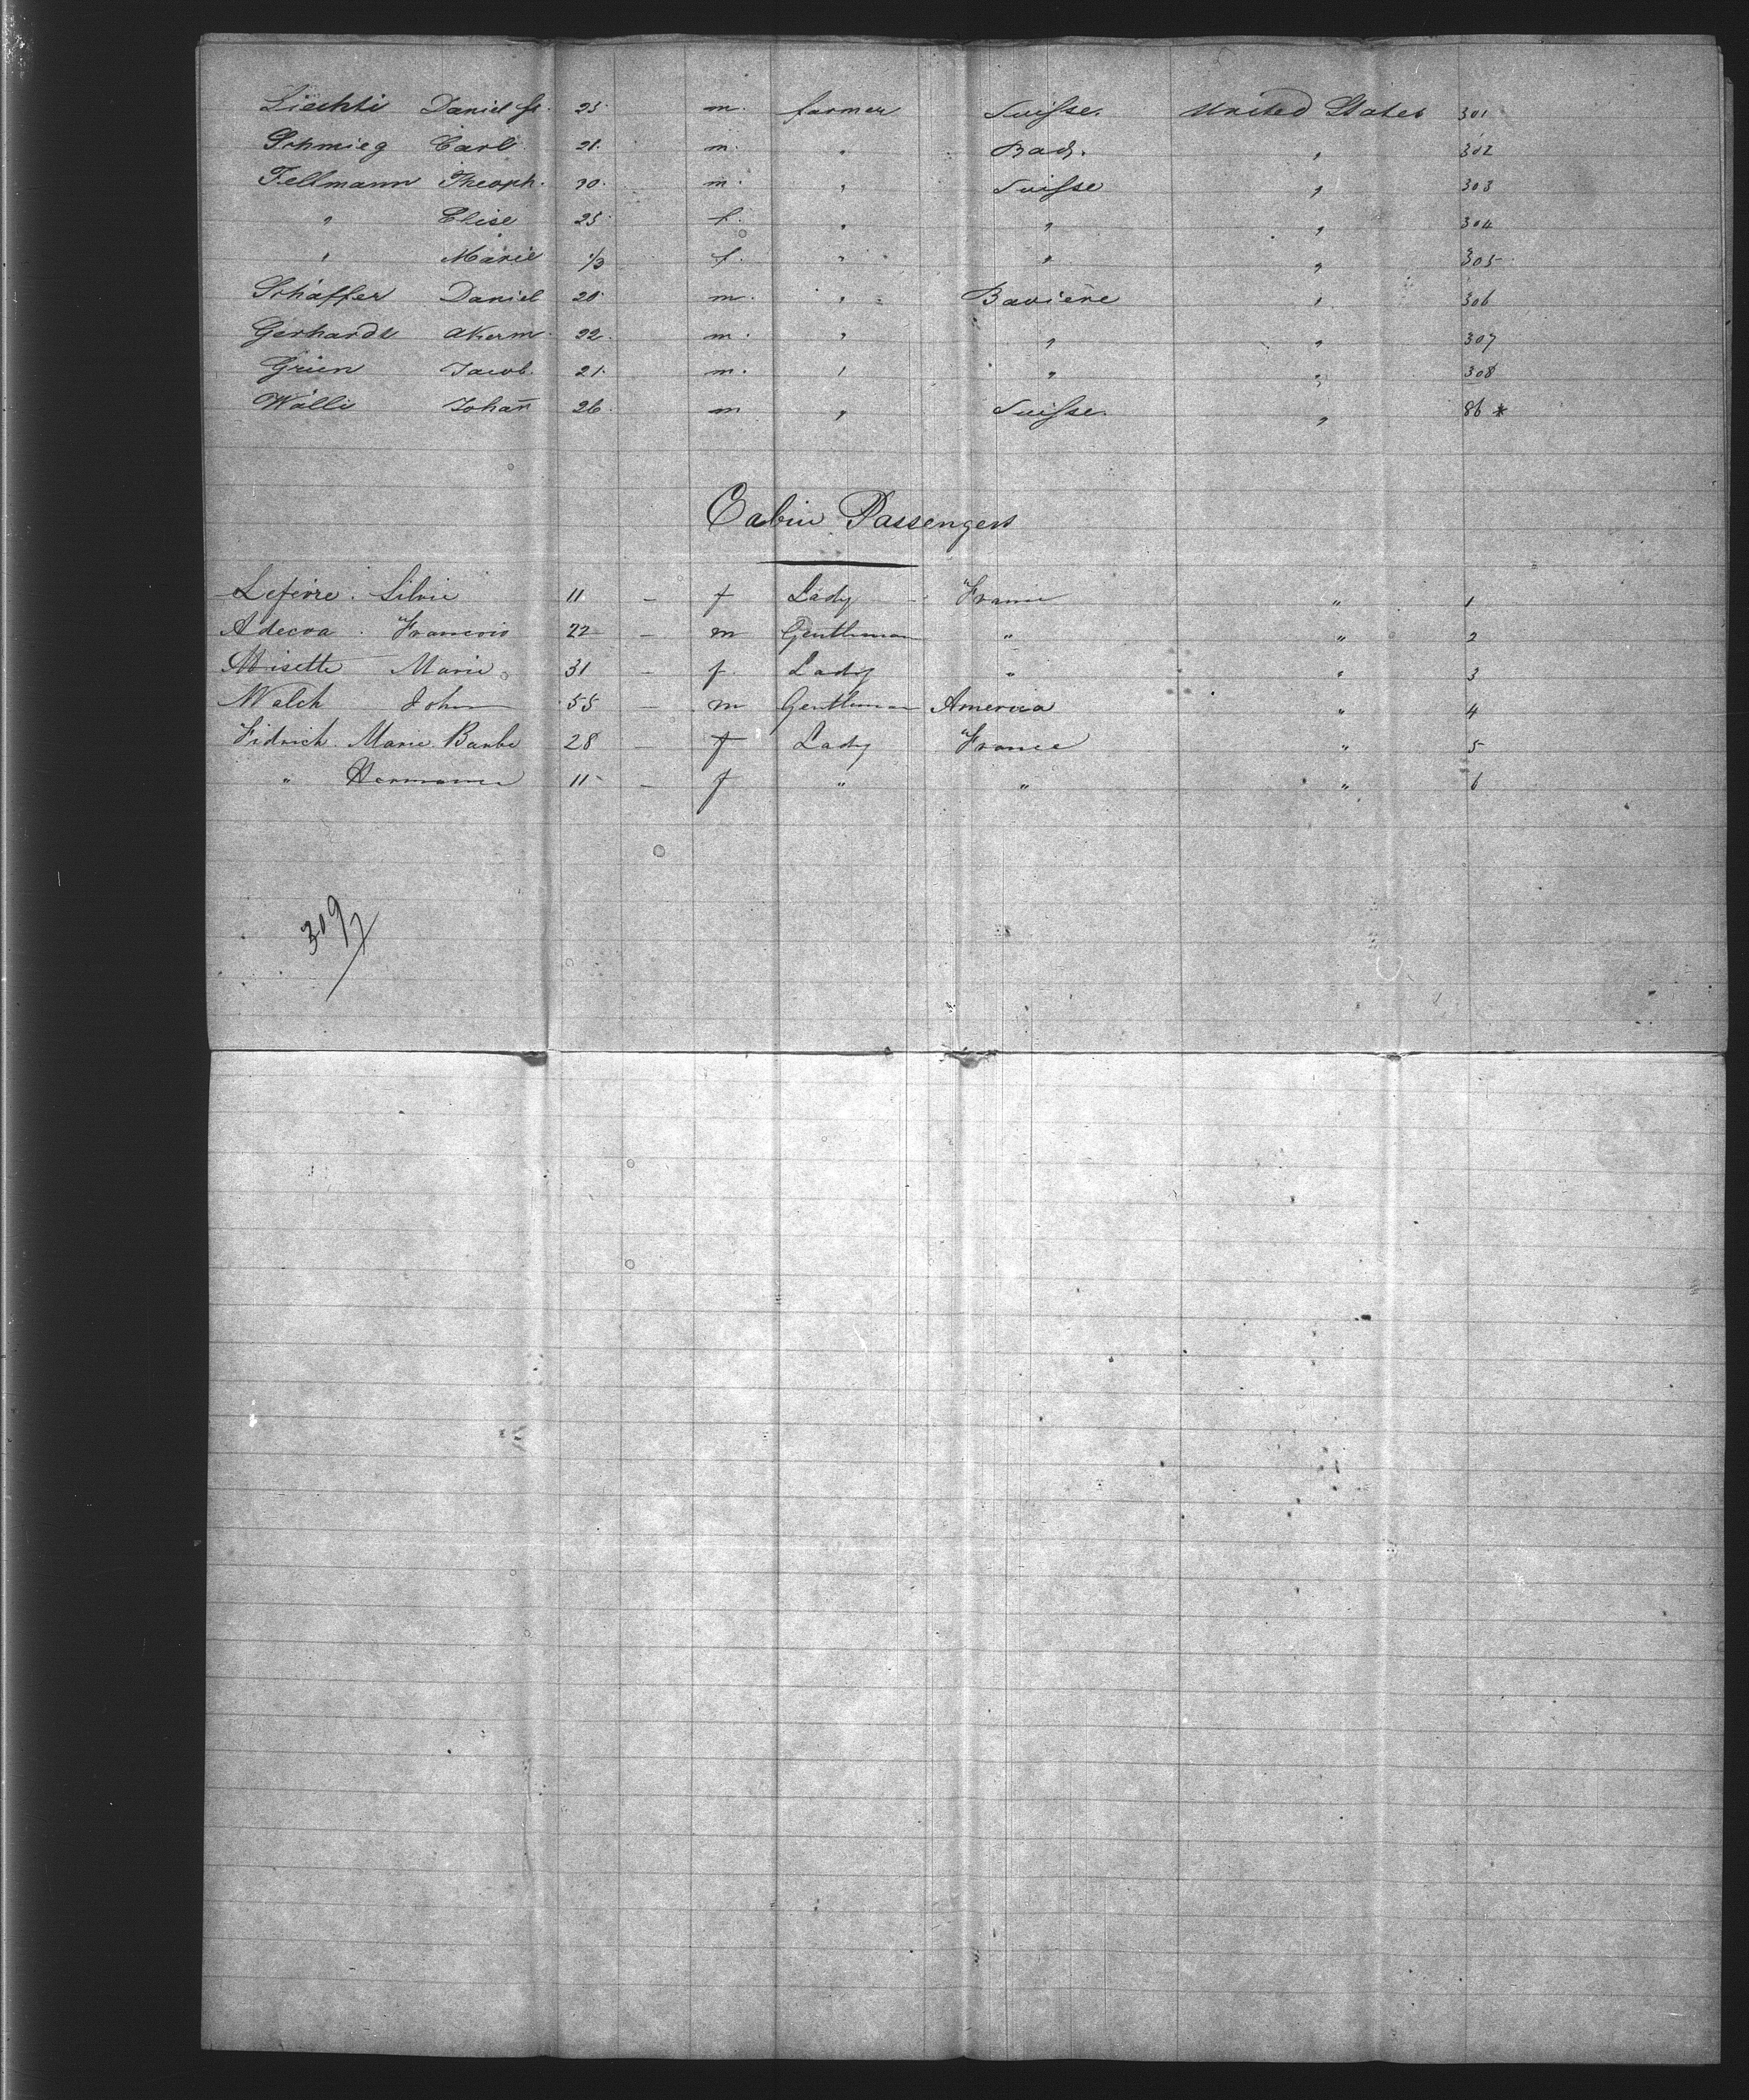 Liechti Daniel fr. 25 m. farmer Suisse. United States 301
Schmieg Carl 21. m. " Bad. " 302
Fellmann Theoph. 30. m. " Suisse " 303
" Elise 25 f. " " " 304
" Marie 1/3 f. " " " 305
Schäffer Daniel 20 m. " Bavière " 306
Gerhardt 22. m. " " " 307
Grün Jacob. 21. m. " " " 308
Wälli Johañ 26. m " Suisse. " 86 *
Cabin Passengers
Silvie 11 - f Lady - France " 1
Francois 22 - m Gentleman " " 2
Marie 31 - f. Lady " " 3
Walch John 55 - m Gentleman America " 4
Fidrich Marie Barbe 28 - f Lady France " 5
" 11 - f " " " 6
309